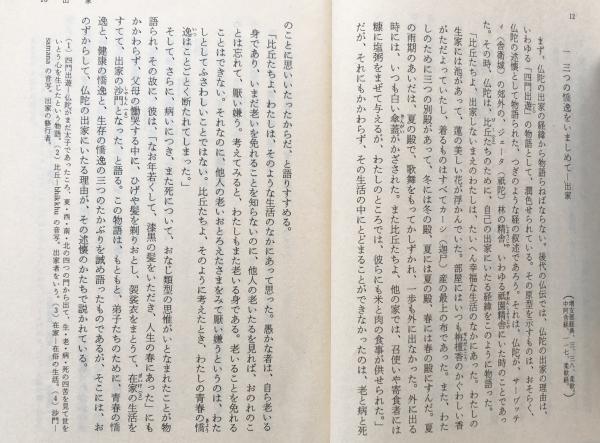 12
一 三つの憍逸をいましめて――出家
(増支部経典、三、三八、柔軟
中阿含経、一一七、柔軟経)
まず、仏陀の出家の経緯から物語らねばならない。後代の仏伝では、仏陀の出家の理由は、
いわゆる「四門出遊」の物語として、潤色せられている。その原型を示すものは、おそらく、
仏陀の述懐として物語られた、つぎのような経の叙述であろう。それは、仏陀が、サーヴァッテ
ィ(舎衛城)の郊外の、ジェータ(祇陀)林の精舎、いわゆる祇園精舎にいた時のことであっ
た。その時、仏陀は、比丘たちのために、自己の出家にいたる経緯をこのように物語った。
「比丘たちよ、出家しないまえのわたしは、たいへん幸福な生活のなかにあった。わたしの
生家には池があって、蓮の美しい花が浮かんでいた。部屋にはいつも栴檀香のかぐわしい香
がただよっていたし、着るものはすべてカーシ(迦尸)産の最上の布であった。また、わた
しのために三つの別殿があって、冬には冬の殿、夏には夏の殿、春には春の殿にすんだ。夏
の雨期のあいだは、夏の殿で、歌舞をもってかしずかれ、一歩も外に出なかった。外に出る
時には、いつも白い傘蓋がかざされた。また比丘たちよ、他の家では、召使いや寄食者には
糠に塩粥をまぜて与えるが、わたしのところでは、彼らにも米と肉の食事が供せられた。」
だが、それにもかかわらず、その生活の中にとどまることができなかったのは、老と病と死
出家
のことに思いいたったからだ、と語りすすめる。
「比丘たちよ、わたしは、そのような生活のなかにあって思った。愚かな者は、自ら老いる
身であり、いまだ老いを免れることを知らないのに、他人の老いたるを見れば、おのれのこ
とは忘れて、厭い嫌う。考えてみると、わたしもまた老いる身である。老いることを免れる
ことはできない。それなのに、他人の老いおとろえたさまをみて厭い嫌うというのは、わた
しとしてふさわしいことではない。比丘たちよ、そのように考えたとき、わたしの青春の憍
逸はことごとく断たれてしまった。」
そして、さらに、病いにつき、また死について、おなじ類型の思惟がいとなまれたことが物
語られ、その故に、彼は、「なお年若くして、漆黒の髪をいただき、人生の春にあった」にも
かかわらず、父母の慟哭する中に、ひげや髪を剃りおとし、袈裟衣をまとうて、在家の生活を
すてて、出家の沙門となった、と語る。この物語は、もともと、弟子たちのために、青春の憍
逸と、健康の憍逸と、生存の憍逸の三つのたかぶりを誡め語ったものであるが、そこには、お
のずからして、仏陀の出家にいたる理由が、その述懐のかたちで説かれている。
(1) 四門出遊―仏陀がまだ太子であったころ、東・西・南・北の四つの門から出て、生・老・病・死の四苦を見て世を
いとう心を生じたという物語。(2) 比丘―bhikkhu の音写。出家者をいう。(3) 在家―在俗の生活。(4) 沙門―
samana の音写。出家の修行者。